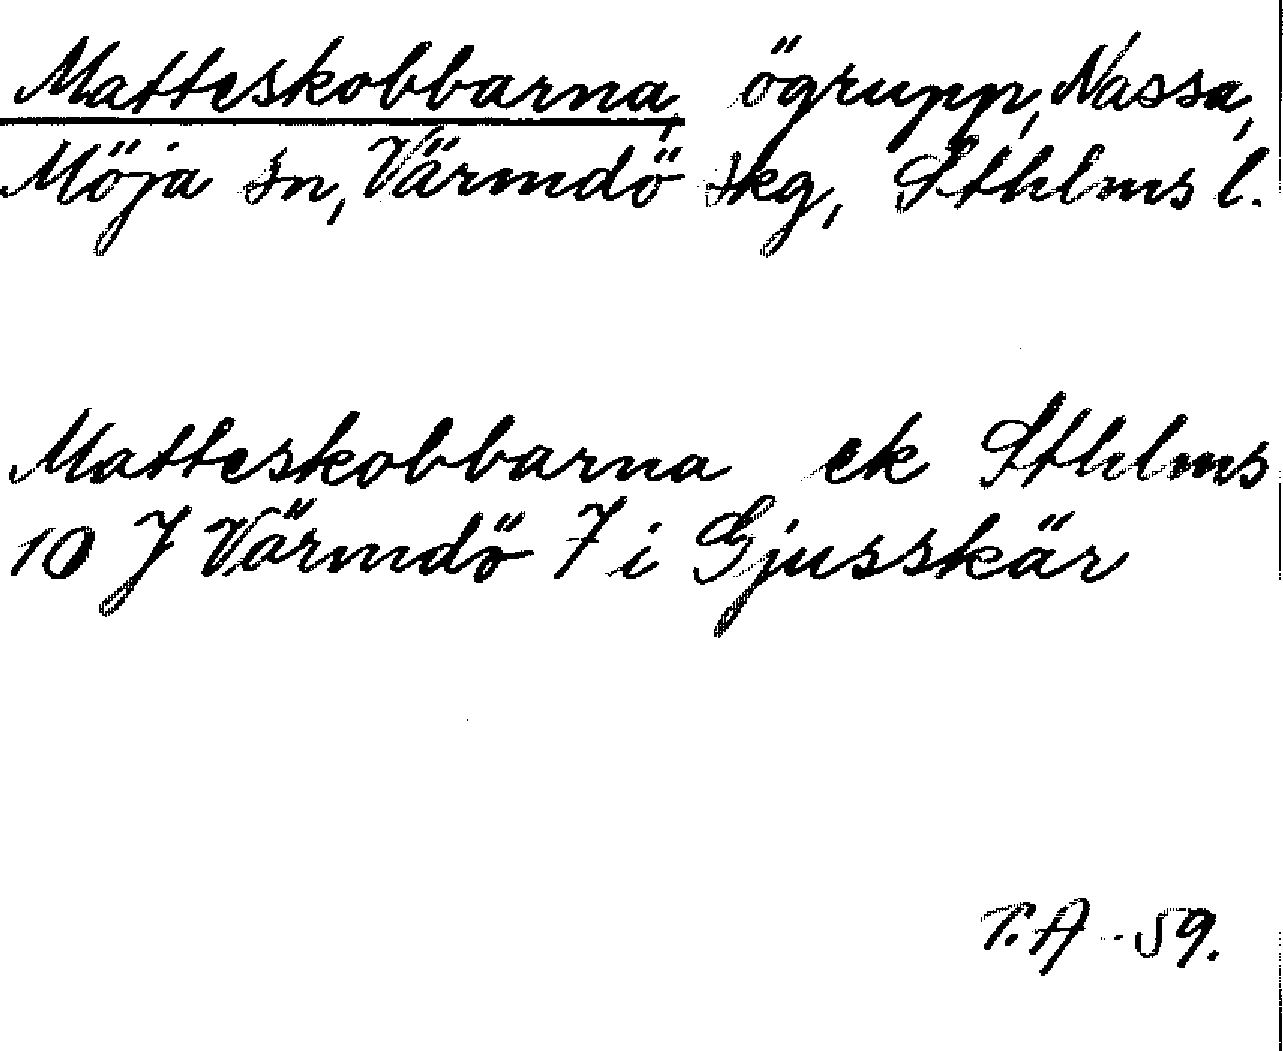 Matteskobbarna, ögrupp, Nassa,
Möja sn, Värmdö skg, Sthlms l.
Matteskobbarna ek Sthlms
10 J Värmdö 7 i Gjusskär
T.A -59.